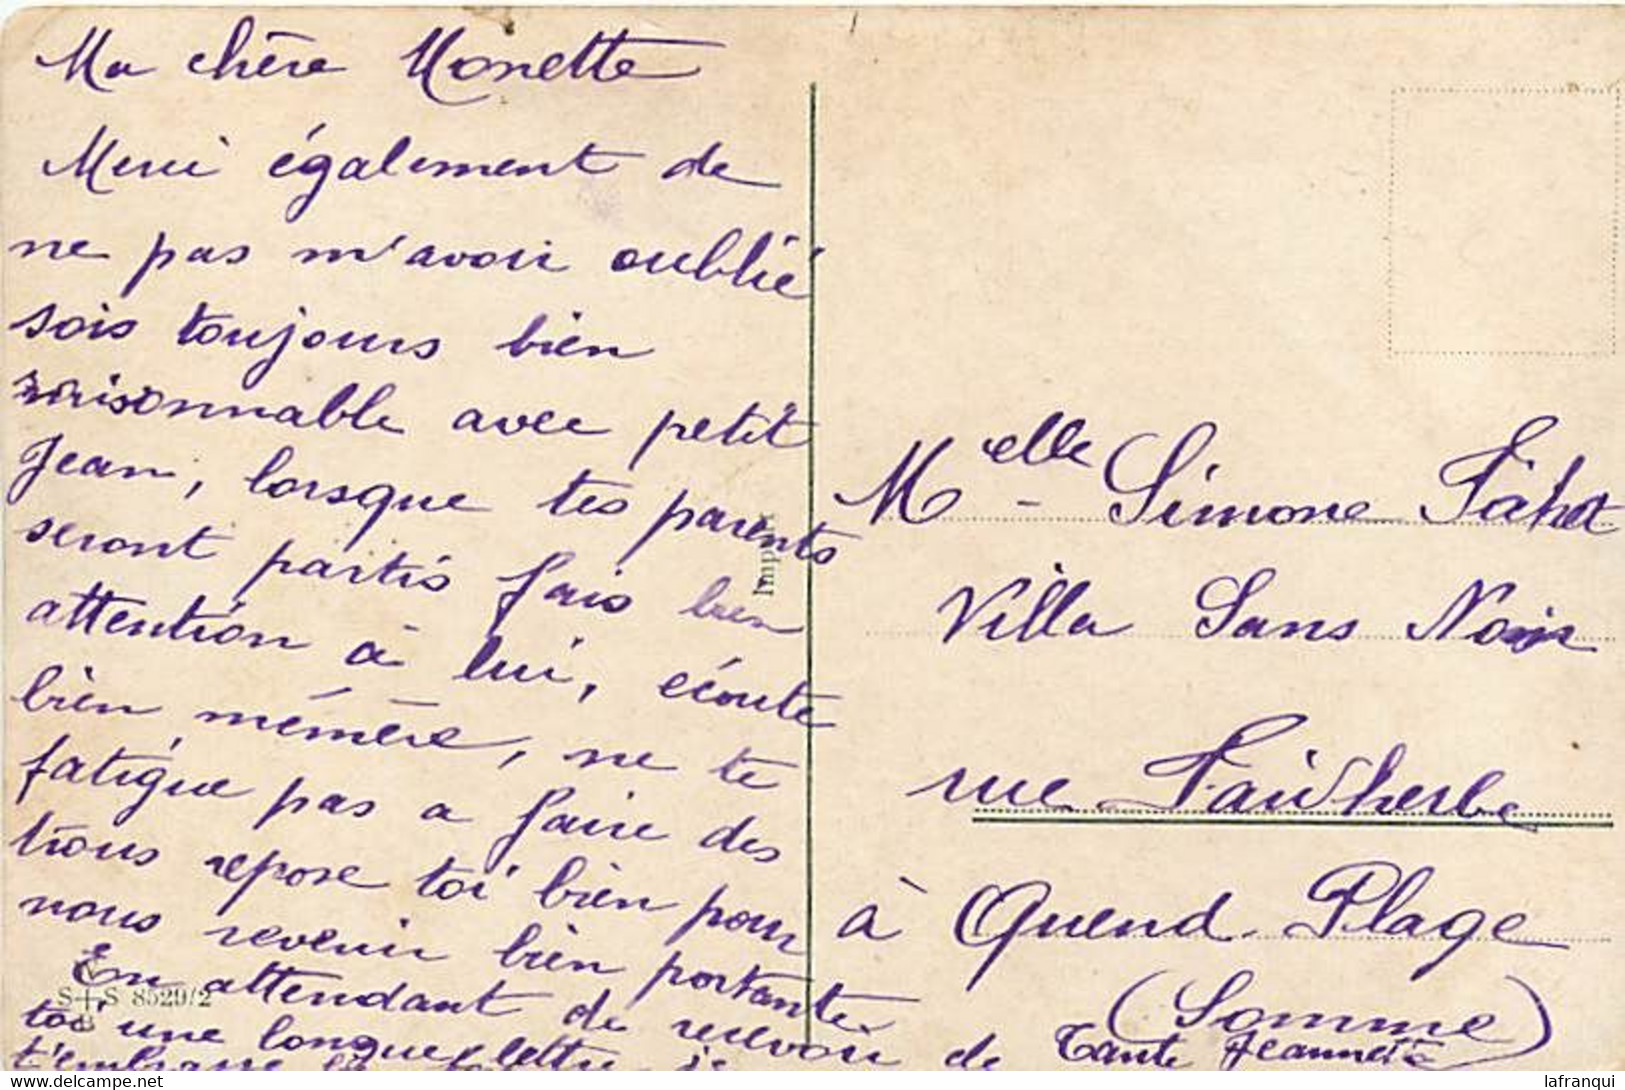 Ma chère Monette
Merci également de
ne pas m'avoir oublié
sois toujours bien
raisonnable avec petit
Jean, lorsque tes parents
seront partis fais bien
attention à lui, écoute
bien mémère, ne te
fatigue pas a faire des
trous repose toi bien pour
nous revenir bien portante.
En attendant de recevoir de
toi une longue lettre je
t'embrasse
Tante Jeannette
Melle Simone
Villa Sans
rue Faidherbe
à Quend-Plage
(Somme)
S+S 8529/2
B
lafranqui
© delcampe.net